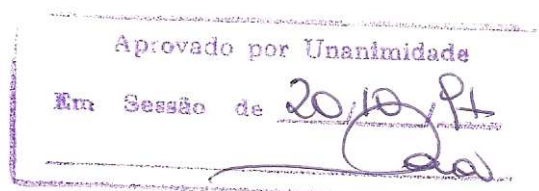 Aprovado por Unanimidade
Em Sessão de 20/10/97